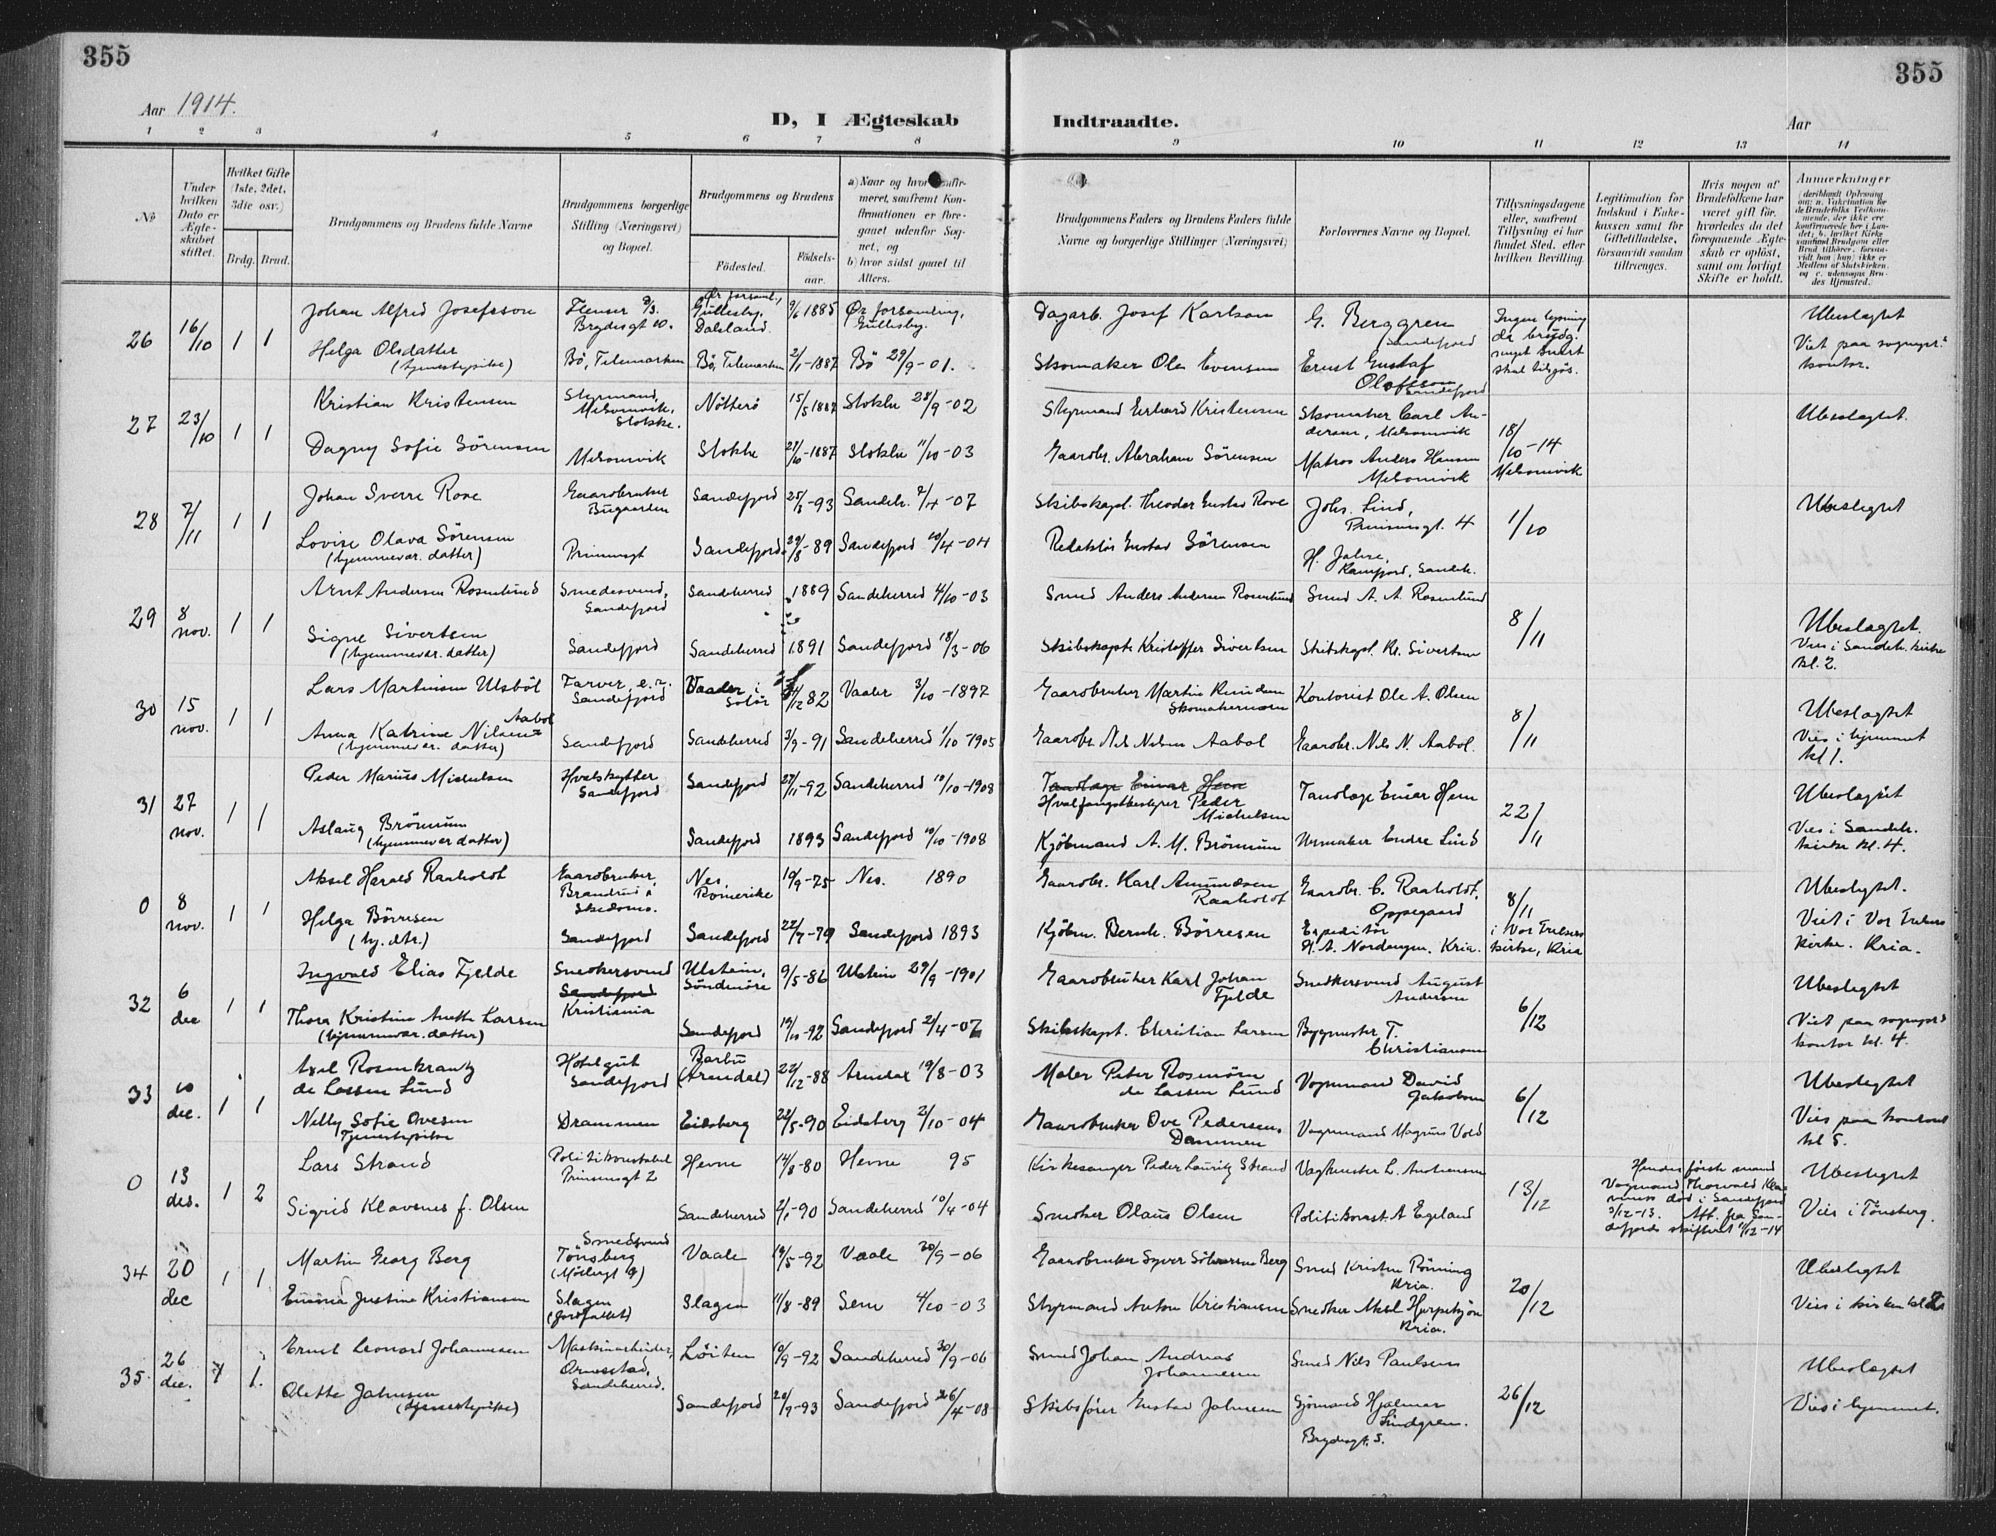 355
355
Aar 1914.
D, I Ægteskab Indtraadte.
Aar
1 2 3 4 5 6 7 8 9 10 11 12 13 14
No
Under hvilken Dato er Ægteskabet stiftet.
Hvilket Gifte (1ste, 2det, 3die osv.)
Brdg. Brud.
Brudgommens og Brudens fulde Navne
Brudgommens borgerlige Stilling (Næringsvei) og Bopæl.
Brudgommens og Brudens
Fødested.
Fødselsaar.
Brudgommens Faders og Brudens Faders fulde Navne og borgerlige Stillinger (Næringsvei)
Forlovernes Navne og Bopæl.
Tillysningsdagene eller, saafremt Tillysning ei har fundet Sted, efter hvilken Bevilling.
Legitimation for Indskud i Enkekassen samt for Giftetilladelse, forsaavidt saadan tiltrænges.
Hvis nogen af Brudefolkene har været gift før, hvorledes da det foregaaende Ægteskab er opløst, samt om lovligt Skifte er holdt.
Anmærkninger
26 16/10 1 1
Johan Alfred Josefsson
Brydesgt 10.
Dalsland
9/6 1885
Dagarb. Josef Karlson
G. Berggren Sandefjord
Ubeslegtet
Helga Olsdatter (tjenestepike)
Bø, Telemarken
Bø, Telemarken
2/1-1887
Bø 29/9-01.
Skomaker Ole Evensen
Ernst Gustaf Oloffson Sandefjord
Viet paa sogneprs. kontor.
27 23/10 1 1
Kristian Kristensen
Styrmand, Melsomvik, Stokke.
Nøtterø
15/5 1887
Stokke 28/9-02
Styrmand Erhard Kristensen
Skomaker Carl Andersen, Melsomvik
18/10-14 Melsomvik
Ubeslegtet.
Dagny Sofie Sørensen
Melsomvik
Stokke
Stokke 11/10-03
Gaardbr. Abraham Sørensen
Matros Anders Hansen Melsomvik
28 7/11 1 1
Johan Sverre Rove
Gaardbruker Bugaarden
Sandefjord
Skibskapt. Theodor Gustav Rove
Johs. Lind, Prinsensgt. 4
1/10
Ubeslegtet
Lovise Olava Sørensen (hjemmevær. datter)
Prinsensgt
Sandefjord
29/8-89
Sandefjord 10/4-04
Redaktør Gustav Sørensen
29 8 nov. 1 1
Arnt Andersen Rosenlund
Smedesvend, Sandefjord
Sandeherred
1889
Sandeherred 4/10-03
Smed Anders Andersen Rosenlund
Smed A. A. Rosenlund
8/11
Ubeslegtet.
Signe Sivertsen (hjemmevær. datter)
Sandefjord
Sandeherred
1891
Sandefjord 18/3-06
Skibskapt. Kristoffer Sivertsen
Skibskapt. Kr. Sivertsen
Vies i Sandeh. kirke kl. 2.
30 15 nov. 1 1
Lars Martinsen Ulsbøl
Sandefjord
Vaaler i Solør
Vaaler 3/10-1897
Kontorist Ole A. Olsen
8/11
Ubeslegtet
Anna Katrine Nilsen Aabol (hjemmevær. datter)
Sandefjord
Sandeherred
3/9-91
Sandeherred 1/10-1905
Gaardbr. Nils Nilsen Aabol
Gaardbr. Nils N. Aabol.
Vies i hjemmet kl 1.
31 27 nov. 1 1
Peder Marius Michelsen
Hvalskytter Sandefjord
Sandefjord
27/11-92
Sandeherred 10/10-1908
Tandlæge Einar Hem
Hvalfangstbestyrer Peder Michelsen
Tandlæge Einar Hem
22/11
Ubeslegtet
Aslaug Brønnum (hjemmevær datter)
Sandefjord
1893
Sandefjord 10/10-1908
Kjøbmand A. M. Brønnum
Urmaker Endre Lind
Vies i Sandeh. kirke kl. 4.
0 8 nov. 1 1
Aksel Harald Raaholdt
Gaardbruker
Nes Romerike
19/9-75
Nes. 1890
Gaardbr. Karl Amundsen Raaholdt
Gaardbr. C. Raaholdt, Oppegaard
8/11 i Vor Frelsers kirke, Kria
Ubeslegtet.
Helga Børresen (hj. dtr.)
Sandefjord
Sandefjord
22/7-79
Sandefjord 1893
Kjøbm. Bernh. Børresen
Expeditør H. A. Nordengen, Kria.
Viet i Vor Frelsers kirke. Kria.
32 6 dec 1 1
Ingvald Elias Fjelde
Snedkersvend Sandefjord Kristiania
Ulstein, Søndmøre
9/5-86
Ulstein 29/9-1901
Gaardbruker Karl Johan Fjelde
Snedkersvend August Andersen
6/12
Ubeslegtet
Thora Kristine Anette Larsen (hjemmevær. datter)
Sandefjord
19/10-92
Sandefjord 2/4-07
Skibskapt. Christian Larsen
Bygmester T. Christiansen
Viet paa sogneprs kontor kl. 4.
33 10 dec. 1 1
Axel Rosenkrantz de Lassen Lund
Hotelgut Sandefjord
Barbu (Arendal)
22/12-88
Arendal 19/8-03
Maler Peter Rosenørn de Lassen Lund
Vognmand David Jakobsen
6/12
Ubeslegtet
Nelly Sofie Ovesen Tjenestepike
Drammen
Eidsberg
22/5-90
Eidsberg 2/10-04
Gaardbruker Ove Pedersen, Dammen
Vognmand Magnus Vold
Vies paa kontoret kl 5.
0 13 des. 1 2
Lars Strand
Politikonstabel Prinsensgt 2
Hevne
14/8-80
Hevne 95
Kirkesanger Peder Lauritz Strand
Vagtmester L. Andreassen
13/12
Hendes første mand Vognmand Thorvald Klavenes død i Sandefjord 3/12-13. Att. fra Sandefjords skifteret 11/12-14
Ubeslegtet
Sigrid Klavenes f. Olsen
Sandeherred
2/1-90
Sandeherred 10/4-04
Snedker Olaus Olsen
Politikonst. A Egeland
Vies i Tønsberg.
34 20 dec 1 1
Martin Georg Berg
Smedsvend Tønsberg
Vaale
19/5-92
Vaale 30/9-06
Gaardbruker Syver Berg
Smed Kristen Rønning Kria.
20/12
Ubeslegtet
Emma Justine Kristiansen
Slagen
Slagen
11/8-89
Sem 4/10-03
Styrmand Anton Kristiansen
Snedker Aksel Kria.
Vies i kirken kl
35 26 dec. 1 1.
Ernst Leonard Johannesen
Maskinarbeider, Ormestad, Sandeherred.
Løiten
19/9-92
Sandeherred 30/9-06
Smed Johan Andreas Johannesen
Smed Nils Paulsen
26/12
Ubeslegtet
Olette Jahnsen (tjenestepike)
Sandefjord
20/9-93
Sandefjord 26/4-08
Skibsfører Gustav Jahnsen
Sjømand Hjalmar Lindgren. Brydesgt. 5.
Vies i hjemmet.